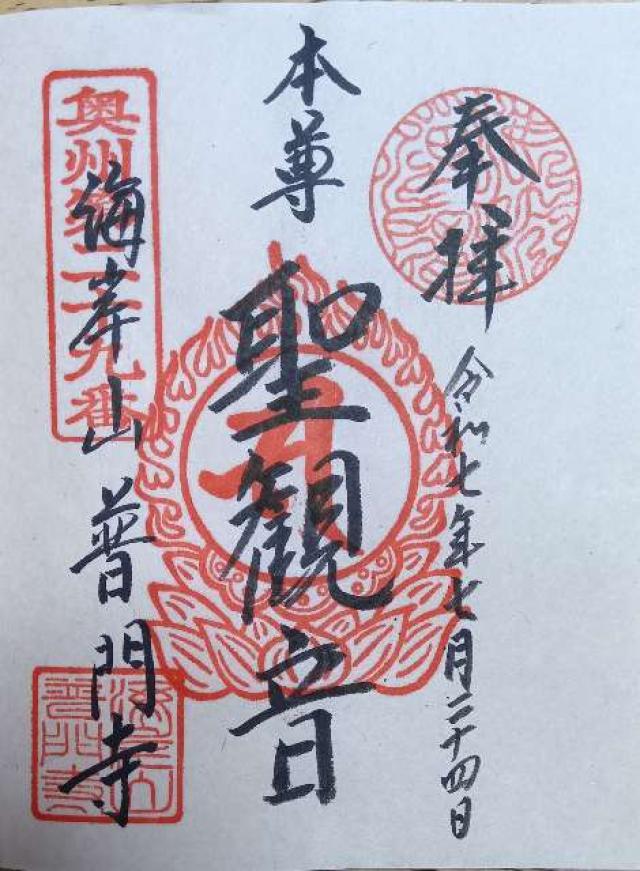 奉拝
令和七年七月二十四日
本尊
聖観音
奥州第二十九番
海岸山普門寺